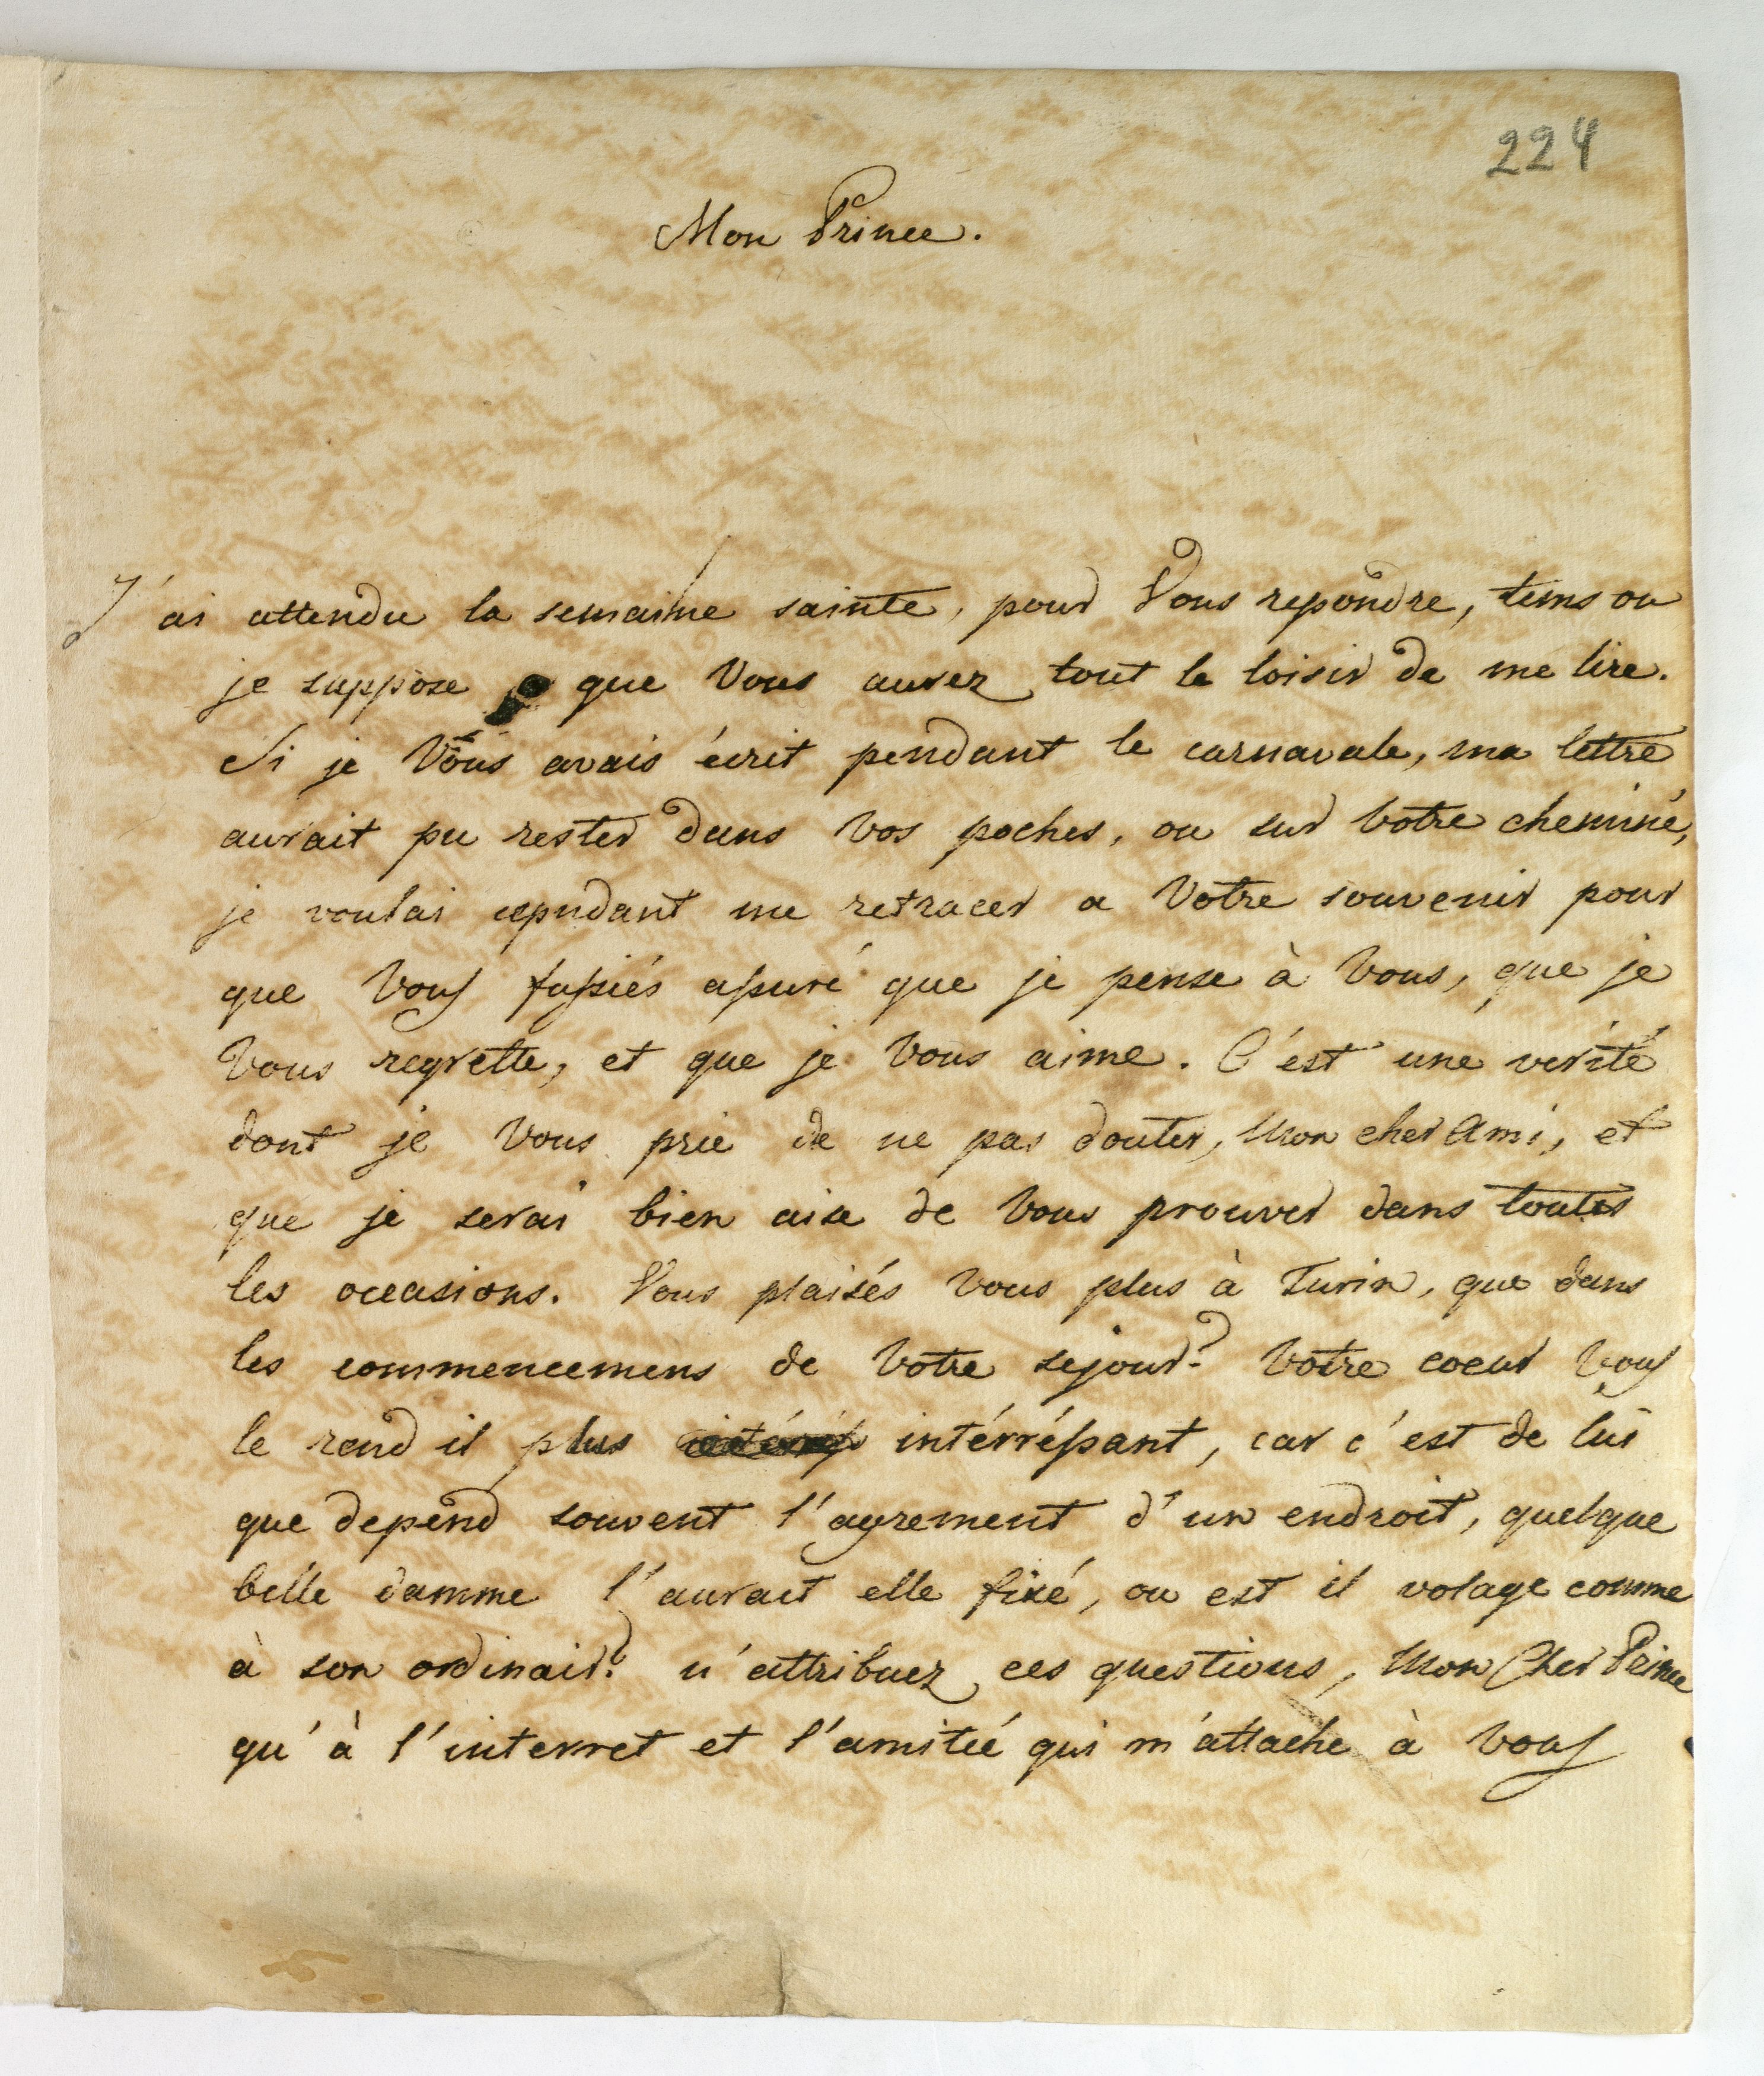 224
Mon Prince.
J'ai attendu la semaine sainte, pour Vous repondre, tems ou
je suppose que Vous aurez tout le loisir de me lire.
Si je Vous avais écrit pendant le carnavale, ma lettre
aurait pu rester dans vos poches, ou sur votre cheminé,
je voulai cependant me retracer a Votre souvenir pour
que Vous fussiés assuré que je pense à Vous, que je
Vous regrette, et que je Vous aime. C'est une verité
dont je Vous prie de ne pas douter, Mon cher Ami, et
que je serai bien aise de Vous prouver dans toutes
les occasions. Vous plaisés Vous plus à Turin, que dans
les commencemens de Votre sejour? Votre coeur Vous
le rend il plus intérréssant, car c'est de lui
que depend souvent l'agrement d'un endroit, quelque
belle damme l'aurait elle fixé, ou est il volage comme
à son ordinair? n'attribuez ces questions, Mon Cher Prince
qu'à l'interret et l'amitié qui m'attache à Vous